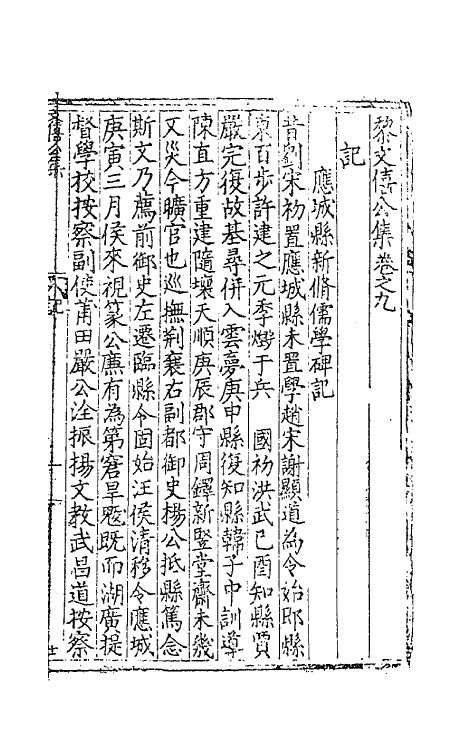 黎文僖公集卷之九
記
應城縣新脩儒學碑記
昔劉宋初置應城縣未置學趙宋謝顯道為令始即縣
東百步許建之元季燬于兵　國初洪武己酉知縣賈
嚴完復故基尋併入雲夢庚申縣復知縣韓子中訓導
陳直方重建隨壞天順庚辰郡守周鐸新豎堂齋未幾
又災今曠官也巡撫荆襄右副都御史楊公抵縣篤念
斯文乃薦前御史左遷臨縣令固始汪侯清移令應城
庚寅三月侯來視篆公廉有為第窘旱暵既而湖廣提
督學校按察副使莆田嚴公淦振揚文教武昌道按察